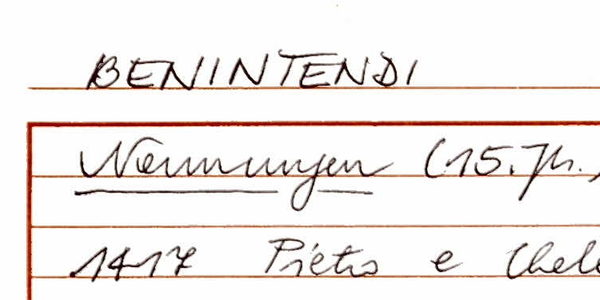 BENINTENDI
Nennungen (15. Jh.)
1417 Pietro e Chele